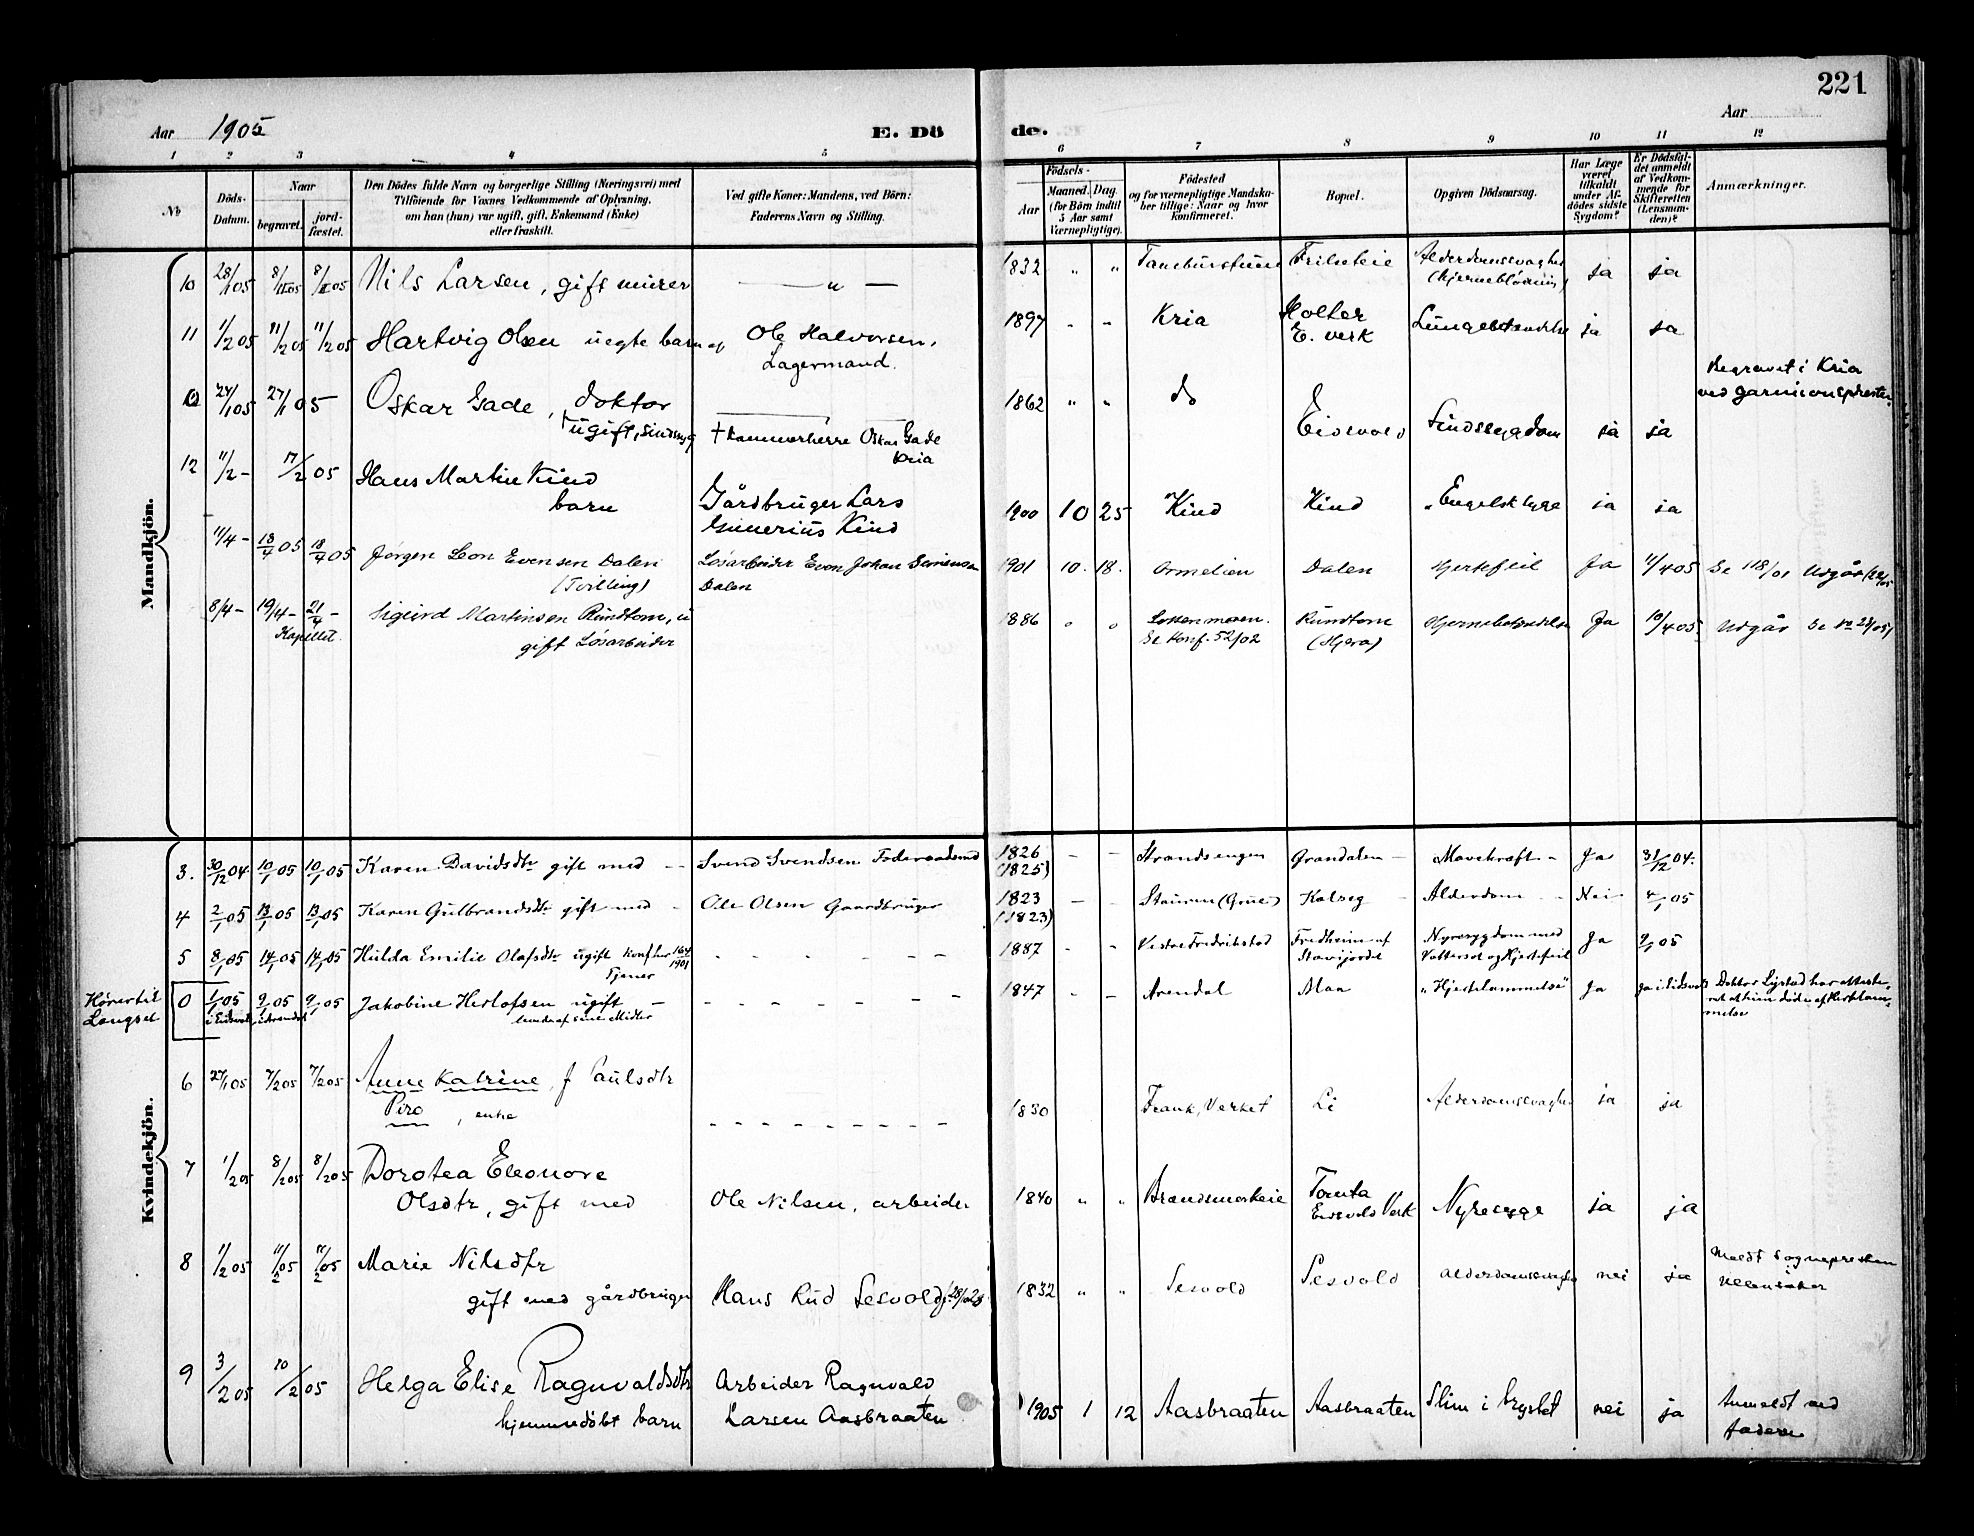 221
Aar 1905 E. Dö de. Aar
1 2 3 4 5 6 7 8 9 10 11 12
No
Döds-Datum.
Naar
begravet. jord-fæstet.
Den Dödes fulde Navn og borgerlige Stilling (Næringsvei) med
Tilföiende for Voxnes Vedkommende af Oplysning,
om han (hun) var ugift, gift, Enkemand (Enke)
eller fraskilt.
Ved gifte Koner: Mandens, ved Börn:
Faderens Navn og Stilling.
Födsels-
Aar Maaned. Dag.
(for Börn indtil
5 Aar samt
Værnepligtige).
Födested
og for værnepligtige Mandska-
ber tillige: Naar og hvor
konfirmeret.
Bopæl.
Opgiven Dödsaarsag.
Har Læge
været
tilkaldt
under Af-
dödes sidste
Sygdom?
Er Dödsfal-
det anmeldt
af Vedkom-
mende for
Skifteretten
(Lensman-
den)?
Anmærkninger.
Mandkjön.
10 28/1 05 8/2 05 8/2 05 Nils Larsen, gift murer — " — 1832 " " Frilseteie Alderdomssvaghed ja ja
(hjerneblødning)
11 1/2 05 11/2 05 11/2 05 Hartvig Olsen uegte barn af Ole Halvorsen, 1897 " " Kria Holter ja ja
Lagermand. E. verk
0 24/1 05 27/1 05 Oskar Gade, doktor 1862 " " do Begravet i Kria
ugift, sindssyg + Kammerherre Oskar Gade Eidsvold Sindssygdom ja ja ved garnisonspresten
Kria
12 11/2 - 17/2 05 Hans Martin Kind
barn Gårdbruger Lars 1900 10 25 Kind Kind Engelsk syge ja ja
Gunerius Kind
11/4 - 18/4 05 18/4 05 Jørgen Leon Evensen Dalen Løsarbeider Even Johan Simensen 1901 10. 18. Ormelien Dalen Hjertefeil Ja 11/4 05 Se 118/01 Udgår
(Tvilling) Dalen
8/4 - 19/4 - 21/4 - Sigurd Martinsen Rundtom, u 1886 " " Rundtom Hjernebetændelse Ja 10/4 05 Udgår
Kapellet. gift Løsarbeider Se Konf. 52/02 (Hjera)
Kvindekjön.
3. 30/12 04 10/1 05 10/1 05 Karen Davidsdtr gift med — Svend Svendsen Føderaadsmd 1826 - - Strandsengen Grandalen - Mavekræft - Ja 31/12 04.
(1825)
4 2/1 05 13/1 05 13/1 05 Karen Gulbrandsdtr gift med - Ole Olsen Gaardbruger 1823 - - Stauren (Grue) Kalseg - Alderdom - Nei 4/1 05
(1823)
5 8/1 05 14/1 05 14/1 05 Hilda Emilie Olafsdtr ugift Konf her 164/1901 1887 - - Vestre Fredrikstad Fredheim af Nyresygdom med Ja 9/1 05
Tjener Stavijordet Vattersot og Hjertefeil
Hörer til
Langset
0 1/1 05 9/1 05 9/1 05 Jakobine Herlofsen ugift — 1847 - - Arendal Maa "Hjertelammelse" Ja ja i Eidsvold
i Eidsvold i Arendal levede af sine Midler
6 27/1 05 7/2 05 7/2 05 Anne Katrine, f Paulsdtr
Piro, enke 1830 Frank, Verket Li Alderdomssvaghed ja ja
7 1/2 05 8/2 05 8/2 05 Dorotea Eleonore
Olsdtr, gift med Ole Nilsen, arbeider 1840 " " Brændsmoseie Tomta Nyresyge ja ja
Eidsvolds Verk
8 1/2 05 11/2 05 11/2 05 Marie Nilsdtr
gift med gårdbruger Hans Rud Sesvold 1832 " " Sesvold Sesvold Alderdomssvaghed nei ja Meldt Sognepresten
Ullensaker
9 3/2 05 10/2 05 Helga Elise Ragnvaldsdtr Arbeider Ragnvald
hjemmedøbt barn Larsen Aasbraaten 1905 1 12 Aasbraaten Aasbraaten Slim i brystet nei ja Anmeldt ved
faderen